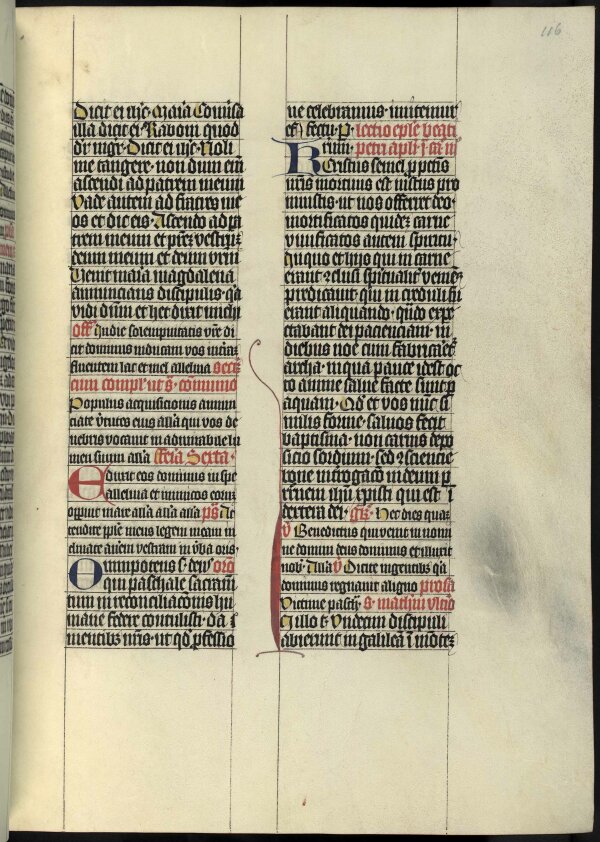 116
Dicit ei ihc. Maria Conversa
illa dicit ei Raboni quod
dr mgr. Dicit ei ihc. Noli
me tangere. non dum eni
ascendi ad patrem meum
Vade autem ad fratres me
os et dic eis. Ascendo ad pa
trem meum et prem vestrum
deum meum et deum vrm
Venit maria magdalena
annuncians discipulis. qa
vidi dnm et hec dixit michi
Off. Indie solempnitatis vre di
cit dominus inducam vos in terram
fluentem lac et mel alleluia secr
cum compl. ut s. commuo
Populus acquisicionis annun
ciate virtutes eius alla qui vos de
nebris vocavit in admirabile lu
men suum alla feria Sexta.
Eduxit eos dominus in spe
alleluia et inimicos eorum
operuit mare alla alla alla ps At
tendite pple meus legem meam in
clinate aurem vestram in verba oris.
Omnipotens s. deus oro
qui paschale sacram
tum in reconciliacionis hu
mane federe contulisti. da i
mentibz nris. ut qd professio
ne celebramus. imitemur
effectu. P. lectio eple beati
Petri apli j. ca iij
Cristus semel pro peccatis
nris mortuus est iustus pro
iniustis. ut nos offerret deo.
mortificatos quidem carne
vivificatos autem spiritu.
In quo et hijs qui in carcere
erant conclusi spiritualiter veniens
predicavit. qui increduli fu
erant aliquando. quando expe
ctabant dei pacienciam. in
diebus noe cum fabricaretur
archa. in qua pauce idest oc
to anime salve facte sunt per
aquam. Qd et vos nunc si
milis forme. salvos fecit
baptisma. non carnis depo
sicio sordium. sed conscientie
bone introgacio in deum per
resurrectionem ihu xpisti qui est i
dextera dei. gr. Hec dies quam
V Benedictus qui venit in nomi
ne domini deus dominus et illuxit
nob. Alla V Dicite in gentibus qa
dominus regnavit a ligno prosa
Victime pasch. S. mathm ultio
In illo t. Undecim discipuli
abierunt in galilea i montem